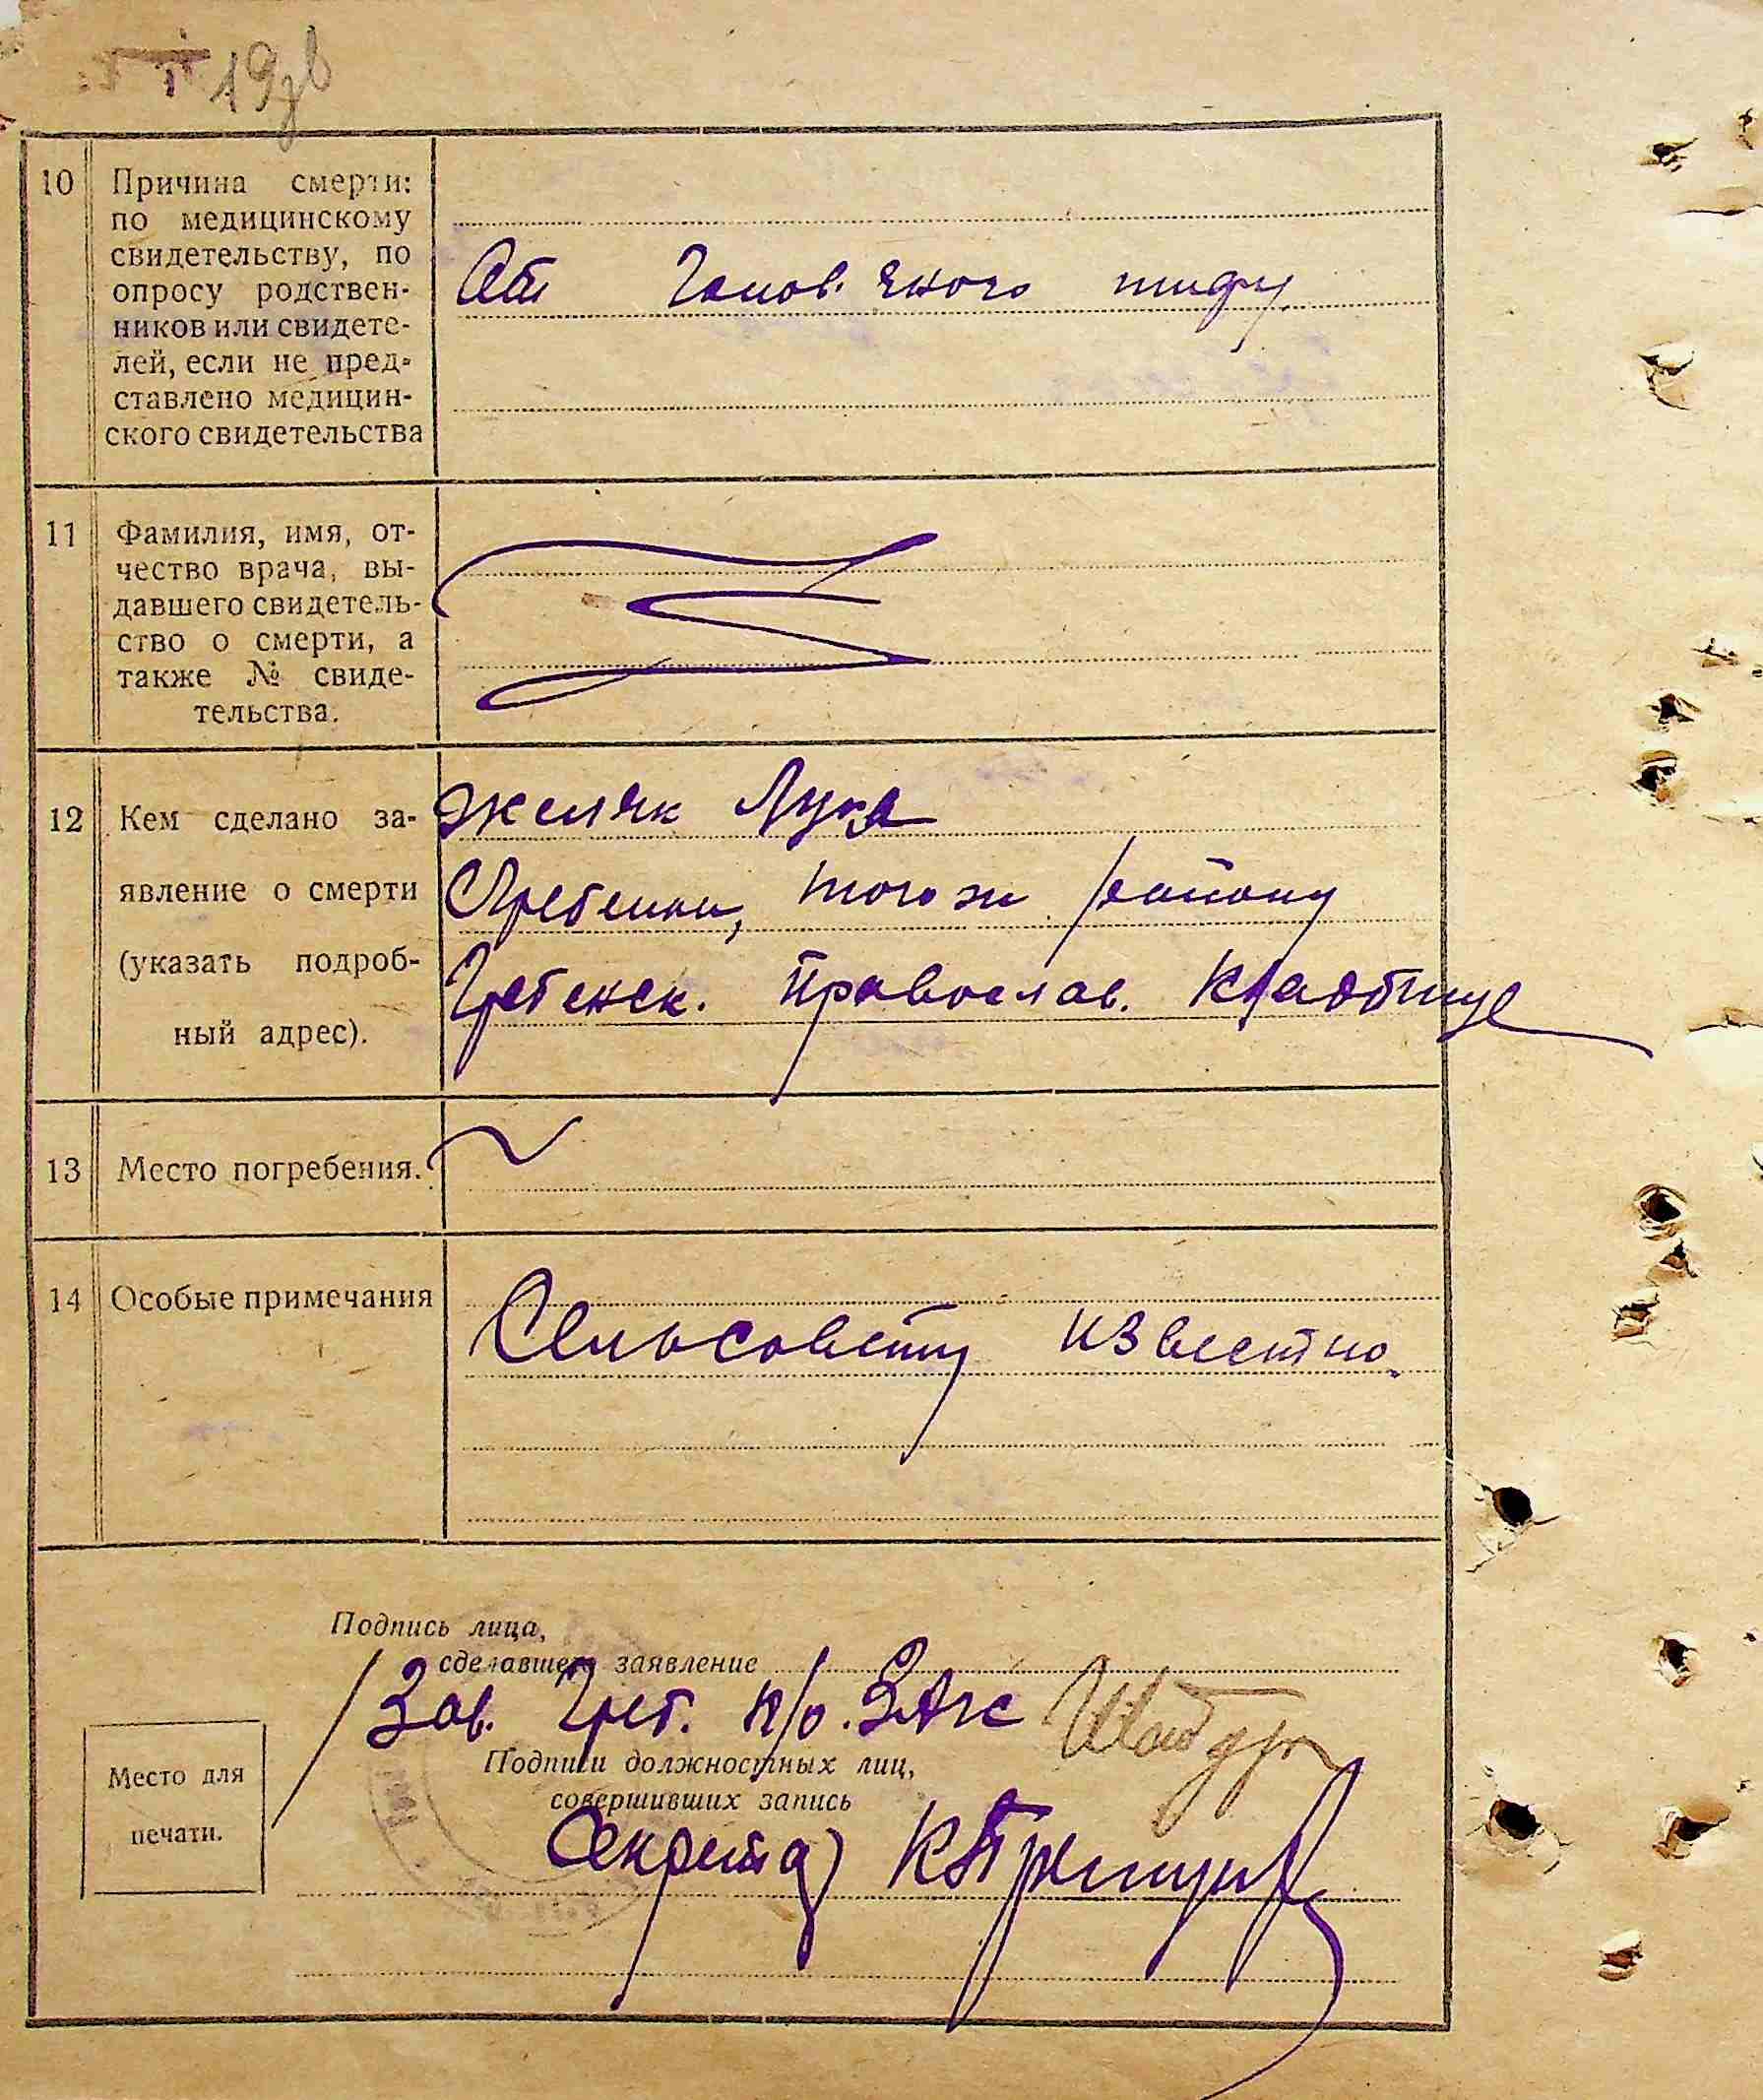 10 Причина смерти:
по медицинскому
свидетельству, по
опросу родствен-
ников или свидете-
лей, если не пред-
ставлено медицин-
ского свидетельства
От тифу
11 Фамилия, имя, от-
чество врача, вы-
давшего свидетель-
ство о смерти, а
также № свиде-
тельства.
12 Кем сделано за-
явление о смерти
(указать подроб-
ный адрес).
Желяк Лука
тогож району
Гребенск. Православ. Кладбище
13 Место погребения.
14 Особые примечания
Сельсовету известно.
Подпись лица,
сделавшего заявление
Зав. Греб. п/о. ЗАГС
Подписи должностных лиц,
совершивших запись
Место для
печати.
Секретар